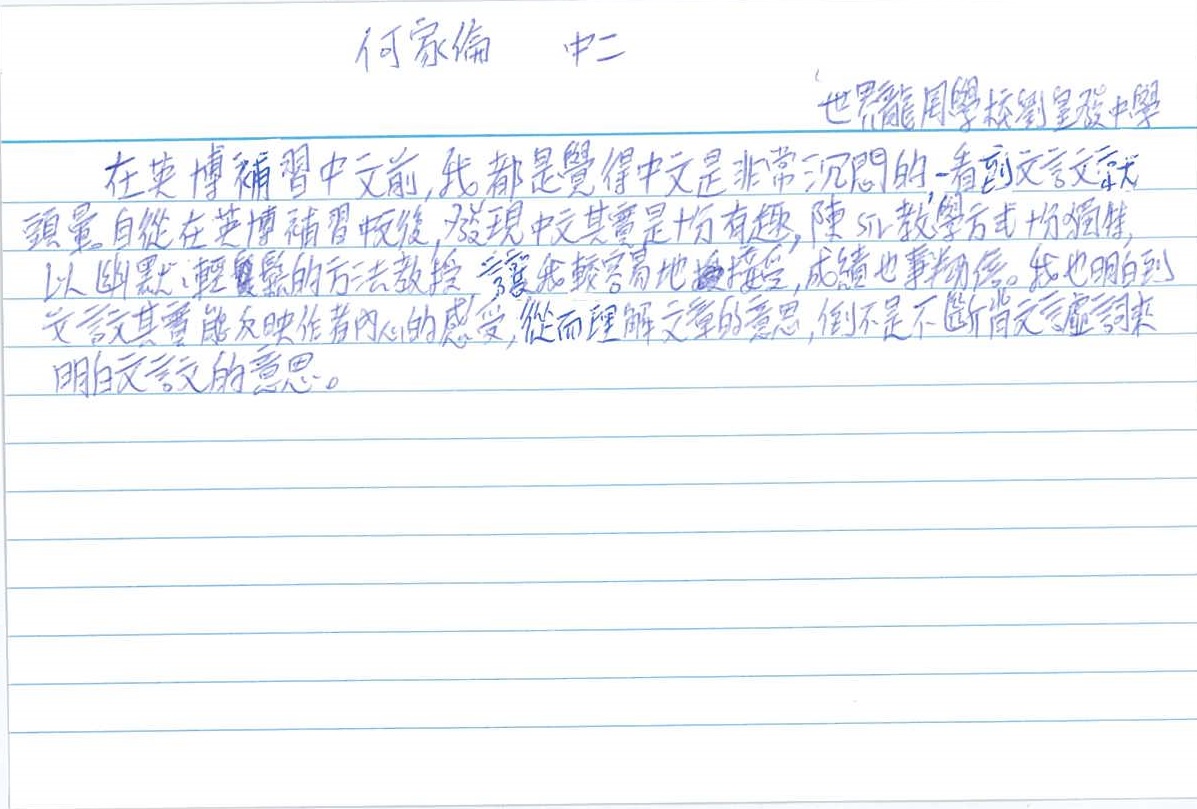 何家倫 中二
世界龍岡學校劉皇發中學
在英博補習中文前,我都是覺得中文是非常沉悶的,一看到文言文就
頭暈。自從在英博補習中文後,發現中文其實是十份有趣,陳sir教學方式十份獨特,
以幽默、輕鬆的方法教授 讓我較容易地接受,成績也事半功倍。我也明白到
文言文其實能反映作者內心的感受,從而理解文章的意思,倒不是不斷背文言虛詞來
明白文言文的意思。